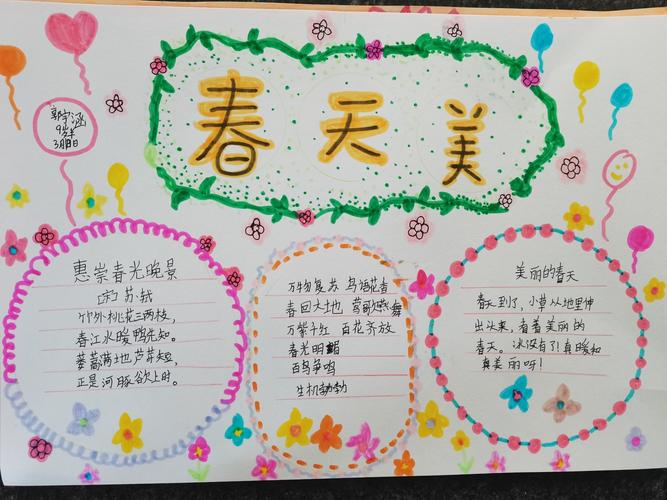 春天美
郭宇涵
9岁半
惠崇春光晚景
[宋]苏·轼
竹外桃花三两枝，
春江水暖鸭先知。
蒌蒿满地芦芽短
正是河豚欲上时。
万物复苏 鸟语花香
春回大地 莺歌燕舞
万紫千红 百花齐放
春光明媚
百鸟争鸣
生机勃勃
美丽的春天
春天到了，小草从地里伸
出头来，看着美丽的
春天。冰没有了！真暖和
真美丽呀！